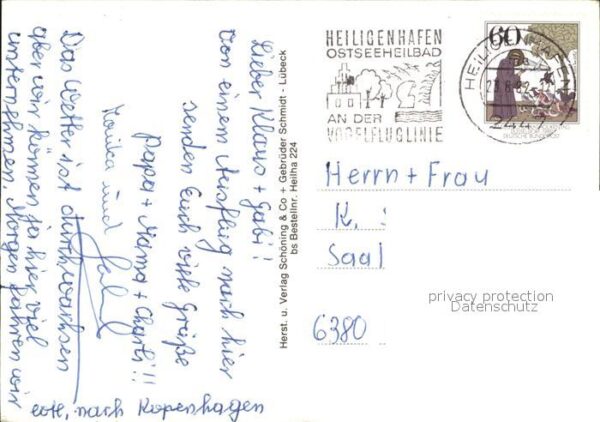 Lieber Klaus + Gabi!
Von einem Ausflug nach hier
senden Euch viele Grüße
Papa + Mama + Charli!!
Monika und
Das Wetter ist durchwachsen
aber wir können ja hier viel
unternehmen. Morgen fahren wir
evtl. nach Kopenhagen
Herst. u. Verlag Schöning & Co + Gebrüder Schmidt - Lübeck
bs Bestellnr. Heilha 224
HEILIGENHAFEN
OSTSEEHEILBAD
AN DER
VOGELFLUGLINIE
60
HEILIGENHAFEN
2447
Herrn + Frau
K. :
Saal
6380
privacy protection
Datenschutz